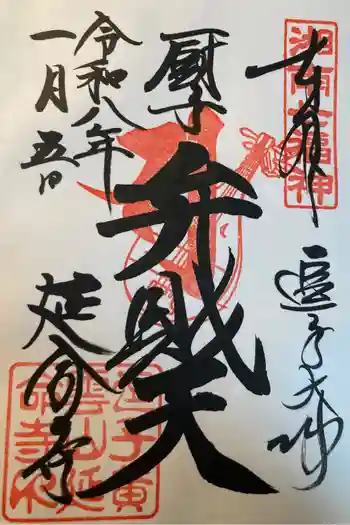 湘南七福神
奉拝
逗子大師
厨子
弁財天
令和八年
一月五日
延命寺
逗子黄
雲山延
命寺印